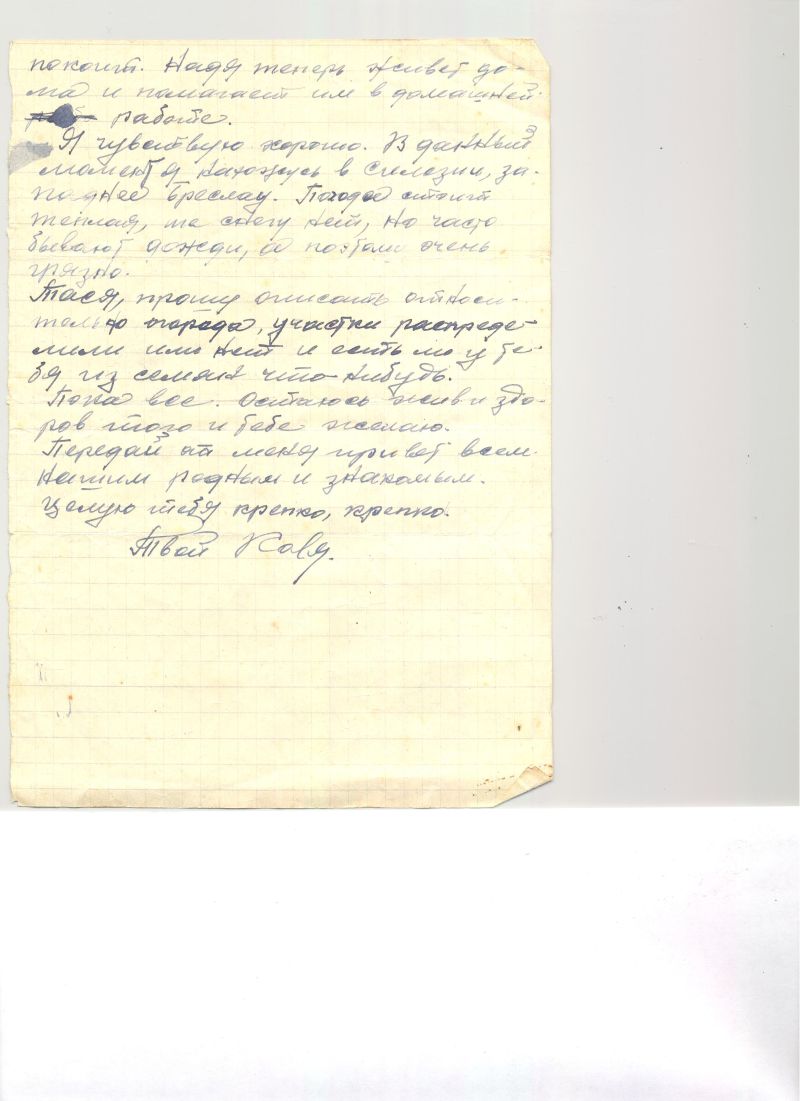 покоит. Надя теперь живет до-
ма и помагает им в домашней
работе.
Я чувствую хорошо. В данный
момент я нахожусь в Силезии, за-
паднее Бреслау. Погода стоит
теплая, снегу нет, но часто
бывают дожди, а поэтому очень
грязно.
Тася, прошу описать относи-
тельно огорода, участки распреде-
лили или нет и есть ли у те-
бя из семян что-нибудь.
Пока все. Остаюсь жив и здо-
ров того и тебе желаю.
Передай от меня привет всем
нашим родным и знакомым.
Целую тебя крепко, крепко.
Твой Коля.